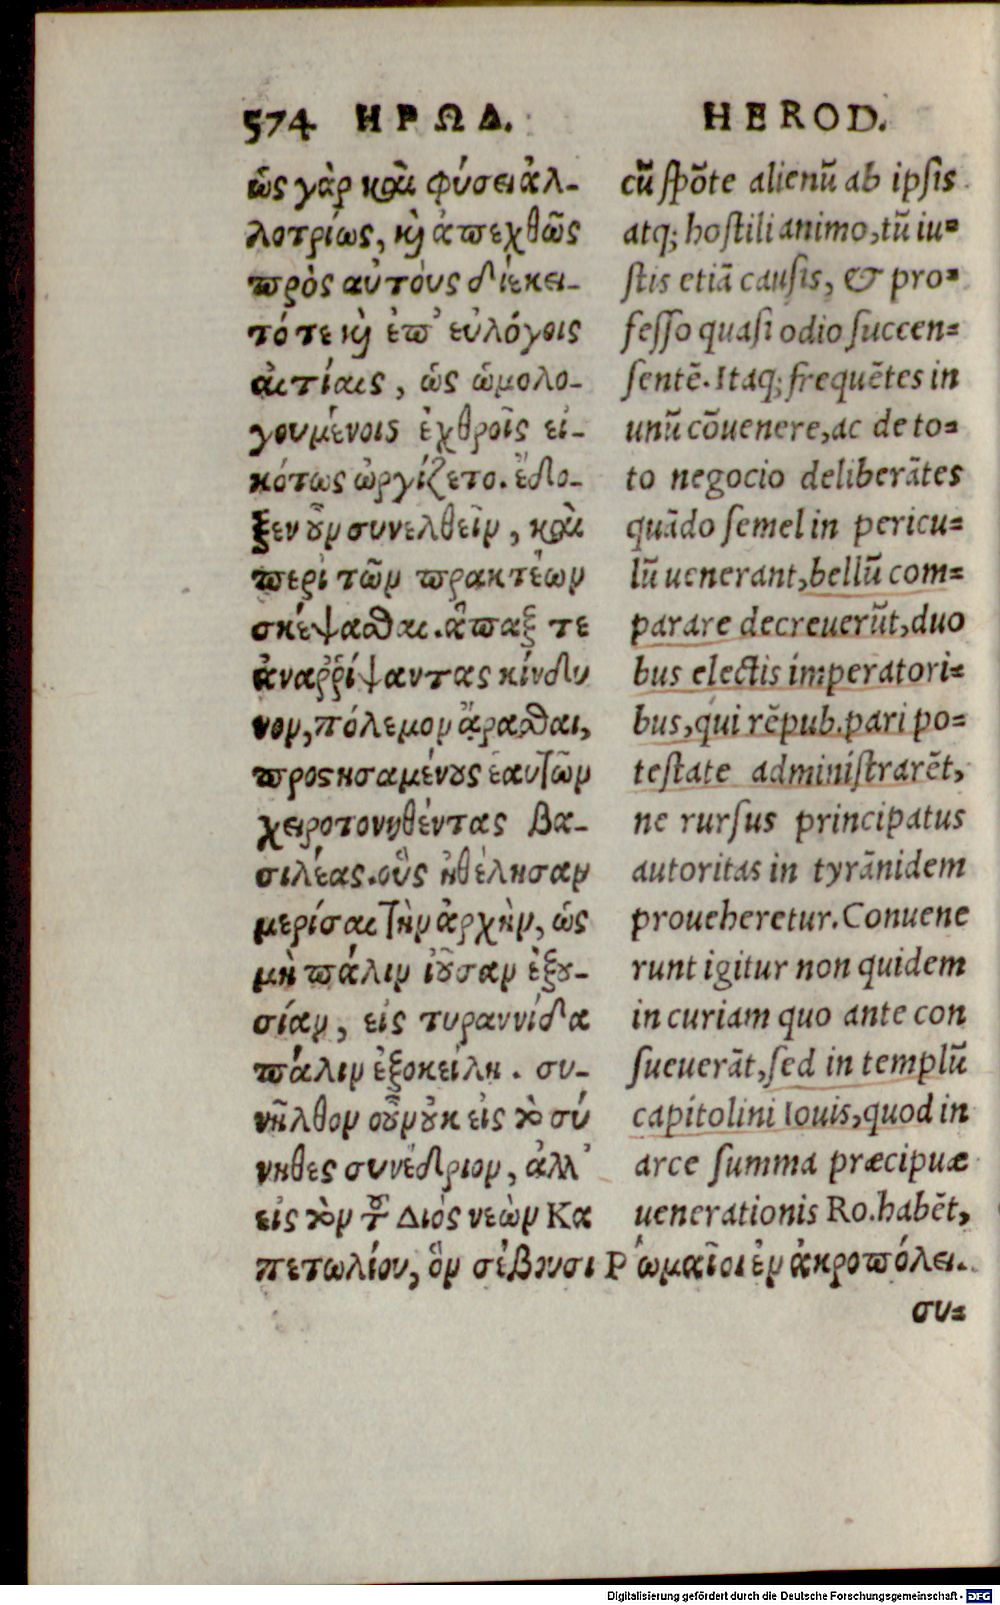 574 ΗΡΩΔ.
ὡς γὰρ καὶ φύσει ἀλ-
λοτρίως, καὶ ἀπεχθῶς
πρὸς αὐτοὺς διέκει-
τό τε καὶ ἐπ' εὐλόγοις
αἰτίαις, ὡς ὡμολο-
γουμένοις ἐχθροῖς εἰ-
κότως ὠργίζετο. ἔδο-
ξεν οὖν συνελθεῖν, καὶ
περὶ τῶν πρακτέων
σκέψασθαι. ἅπαξ τε
ἀναῤῥίψαντας κίνδυ
νον, πόλεμον ἄρασθαι,
προστησαμένους ἑαυτῶν
χειροτονηθέντας βα-
σιλέας. οὓς ἠθέλησαν
μερίσαι τὴν ἀρχὴν, ὡς
μὴ πάλιν ἰοῦσαν ἐξου-
σίαν, εἰς τυραννίδα
πάλιν ἐξοκείλῃ. συ-
νῆλθον οὖν οὐκ εἰς τὸ σύ
νηθες συνέδριον, ἀλλ'
εἰς τὸν τοῦ Διός νεὼν Κα
πετωλίου, ὃν σέβουσι Ῥωμαῖοι ἐν ἀκροπόλει.
συ-
HEROD.
cũ spõte alienũ ab ipsis
atq; hostili animo, tũ iu-
stis etiã causis, & pro-
fesso quasi odio succen-
sentẽ. Itaq; frequẽtes in
unũ cõuenere, ac de to-
to negocio deliberãtes
quãdo semel in pericu-
lũ uenerant, bellũ com-
parare decreuerũt, duo
bus electis imperatori-
bus, qui rẽpub. pari po-
testate administrarẽt,
ne rursus principatus
autoritas in tyrãnidem
proueheretur. Conuene
runt igitur non quidem
in curiam quo ante con
sueuerãt, sed in templũ
capitolini Iouis, quod in
arce summa præcipuæ
uenerationis Ro. habẽt,
Digitalisierung gefördert durch die Deutsche Forschungsgemeinschaft - DFG